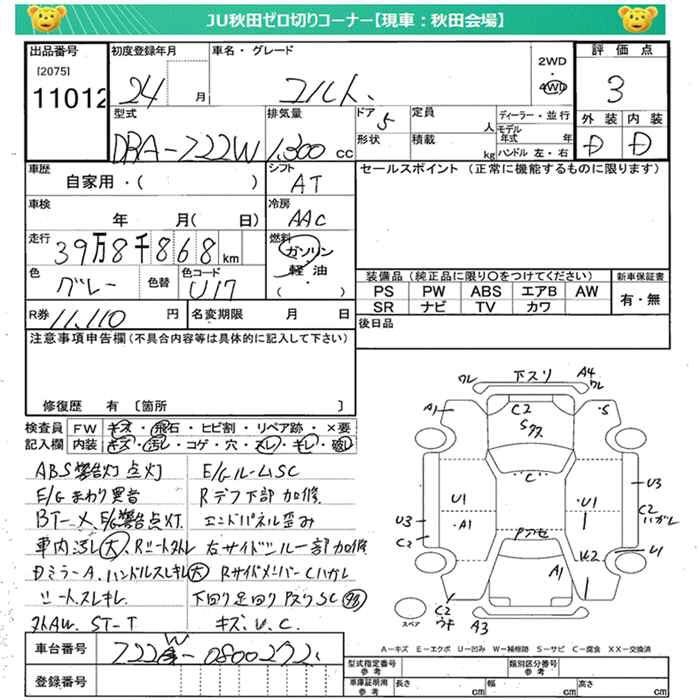 JU秋田ゼロ切りコーナー【現車：秋田会場】
出品番号
[2075]
11012
初度登録年月
24 月
車名・グレード
コルト
2WD
4WD
評価点
3
外装 内装
D D
型式
DBA-Z22W
排気量
1,300 cc
ドア 5
形状
定員 人
積載 kg
ディーラー・並行
モデル年式 年
ハンドル 左・右
車歴
自家用・( )
シフト
AT
セールスポイント (正常に機能するものに限ります)
車検
年 月( 日)
冷房
AAC
走行
39万8千868km
燃料
ガソリン
軽油
( )
色
グレー
色替
色コード
U17
装備品 (純正品に限り○をつけてください)
PS PW ABS エアB AW
SR ナビ TV カワ
新車保証書
有・無
R券 11,110 円
名変期限 月 日
後日品
注意事項申告欄(不具合内容等は具体的に記入して下さい)
修復歴 有 〔箇所 〕
検査員記入欄
FW キズ・飛石・ヒビ割・リペア跡・×要
内装 キズ・汚レ・コゲ・穴・スレ・キレ・破レ
ABS警告灯点灯
E/Gまわり異音
BT-×、E/G警告点灯
車内汚レ(大)、Rシートヌレ
Dミラー A、ハンドルスレキレ(大)
シートスレキレ
ST-T
E/Gルーム SC
Rデフ下部加修
エンドパネル歪み
右サイドシル一部加修
RサイドメンバーCハガレ
下回り足回りPスクSC(多)
キズ、U、C
下スリ
ワレ
A4
ワレ
A1
C2
S
U1
A1
U3
C2
C
U1
U3
C2
ハガレ
U2
U1
A1
C2
ウキ
A3
スペア
A-キズ E-エクボ U-凹み W-補修跡 S-サビ C-腐食 XX-交換済
車台番号
Z22W-0800272
登録番号
型式指定番号
参考
類別区分番号
参考
車庫証明用
参考
長さ cm
幅 cm
高さ cm